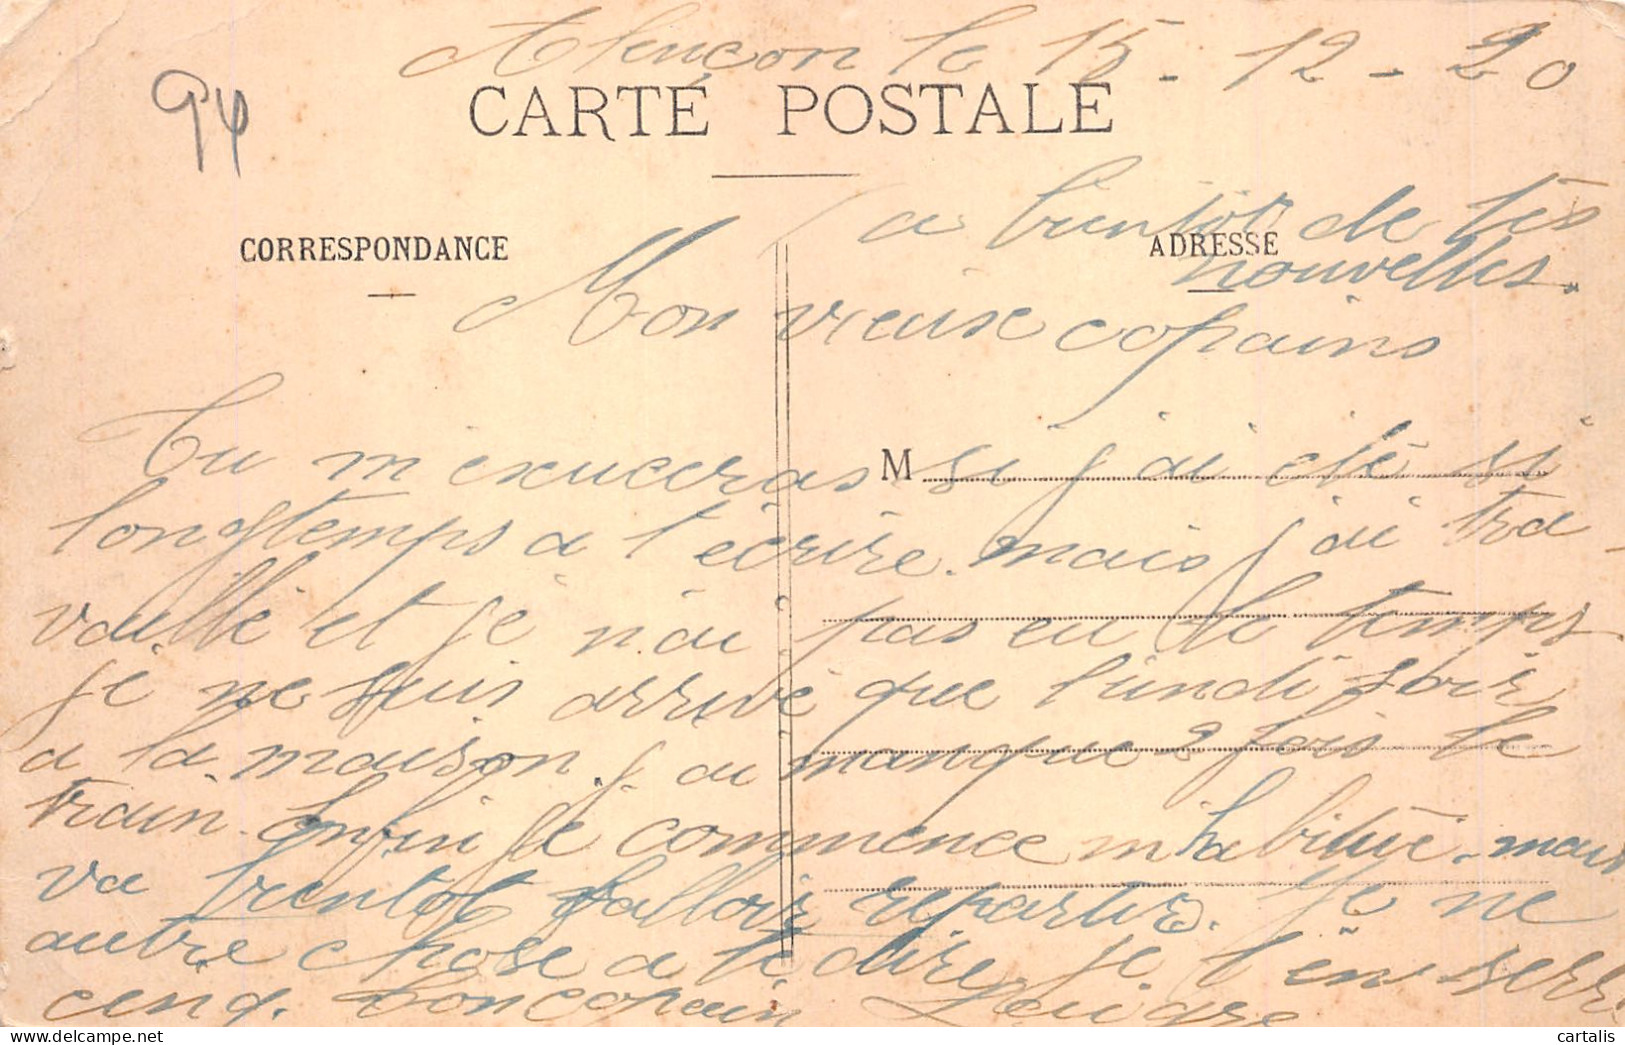 Alençon le 15-12-20
94
CARTE POSTALE
a bientot de tes
CORRESPONDANCE
ADRESSE
nouvelles.
Mon vieux copains
Tu m'exuceras si j'ai été si
M
longtemps a t'écrire. mais j'ai tra-
vaillé et je n'ai pas eu le temps.
je ne suis arrivé que lundi soir
a la maison. j'ai manque 2 fois le
train. enfin je commence m'habitué. mais
va bientot falloir repartir. Je ne
autre chose a te dire je t'en serre
cenq. ton copain
cartalis